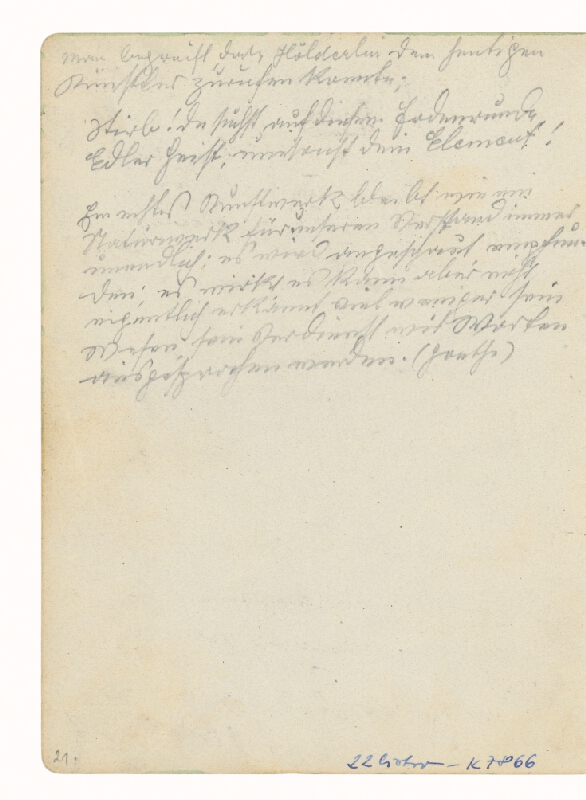 man begreift daß Hölderlin dem heutigen
Künstler zurufen konnte:
Stirb! du suchst auf diesem Erdenrunde,
Edler Geist, umsonst dein Element!
Ein echtes Kunstwerk bleibt wie ein
Naturwerk für unseren Verstand immer
unendlich; es wird angeschaut empfun-
den; es wirkt es kann aber nicht
eigentlich erkannt viel weniger sein
Wesen sein Verdienst mit Worten
ausgesprochen werden. (Goethe)
21.
22 listov – K 7866